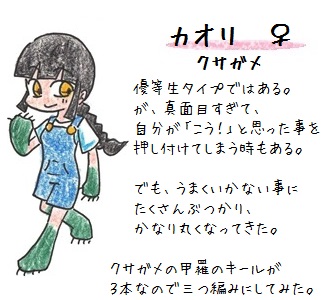 カオリ ♀
クサガメ
優等生タイプではある。
が、真面目すぎて、
自分が「こう!」と思った事を
押し付けてしまう時もある。
でも、うまくいかない事に
たくさんぶつかり、
かなり丸くなってきた。
クサガメの甲羅のキールが
3本なので三つ編みにしてみた。